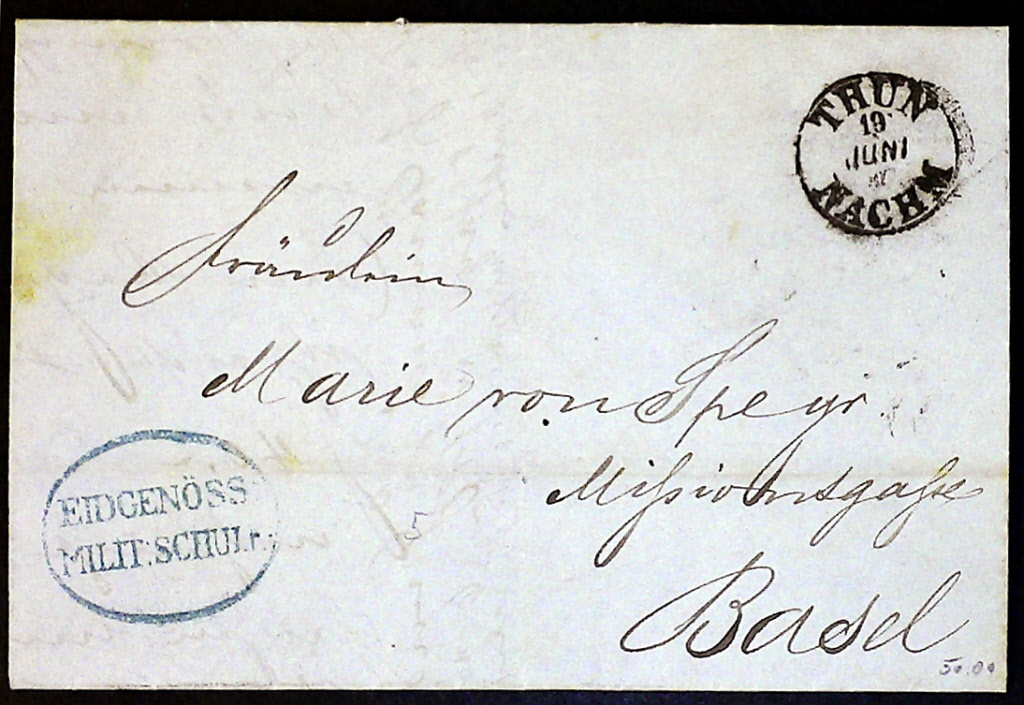 THUN
19
JUNI
NACHM
Fräulein
Marie von Speyr
Missionsgasse
Basel
EIDGENÖSS
MILIT: SCHULE
5
50.00